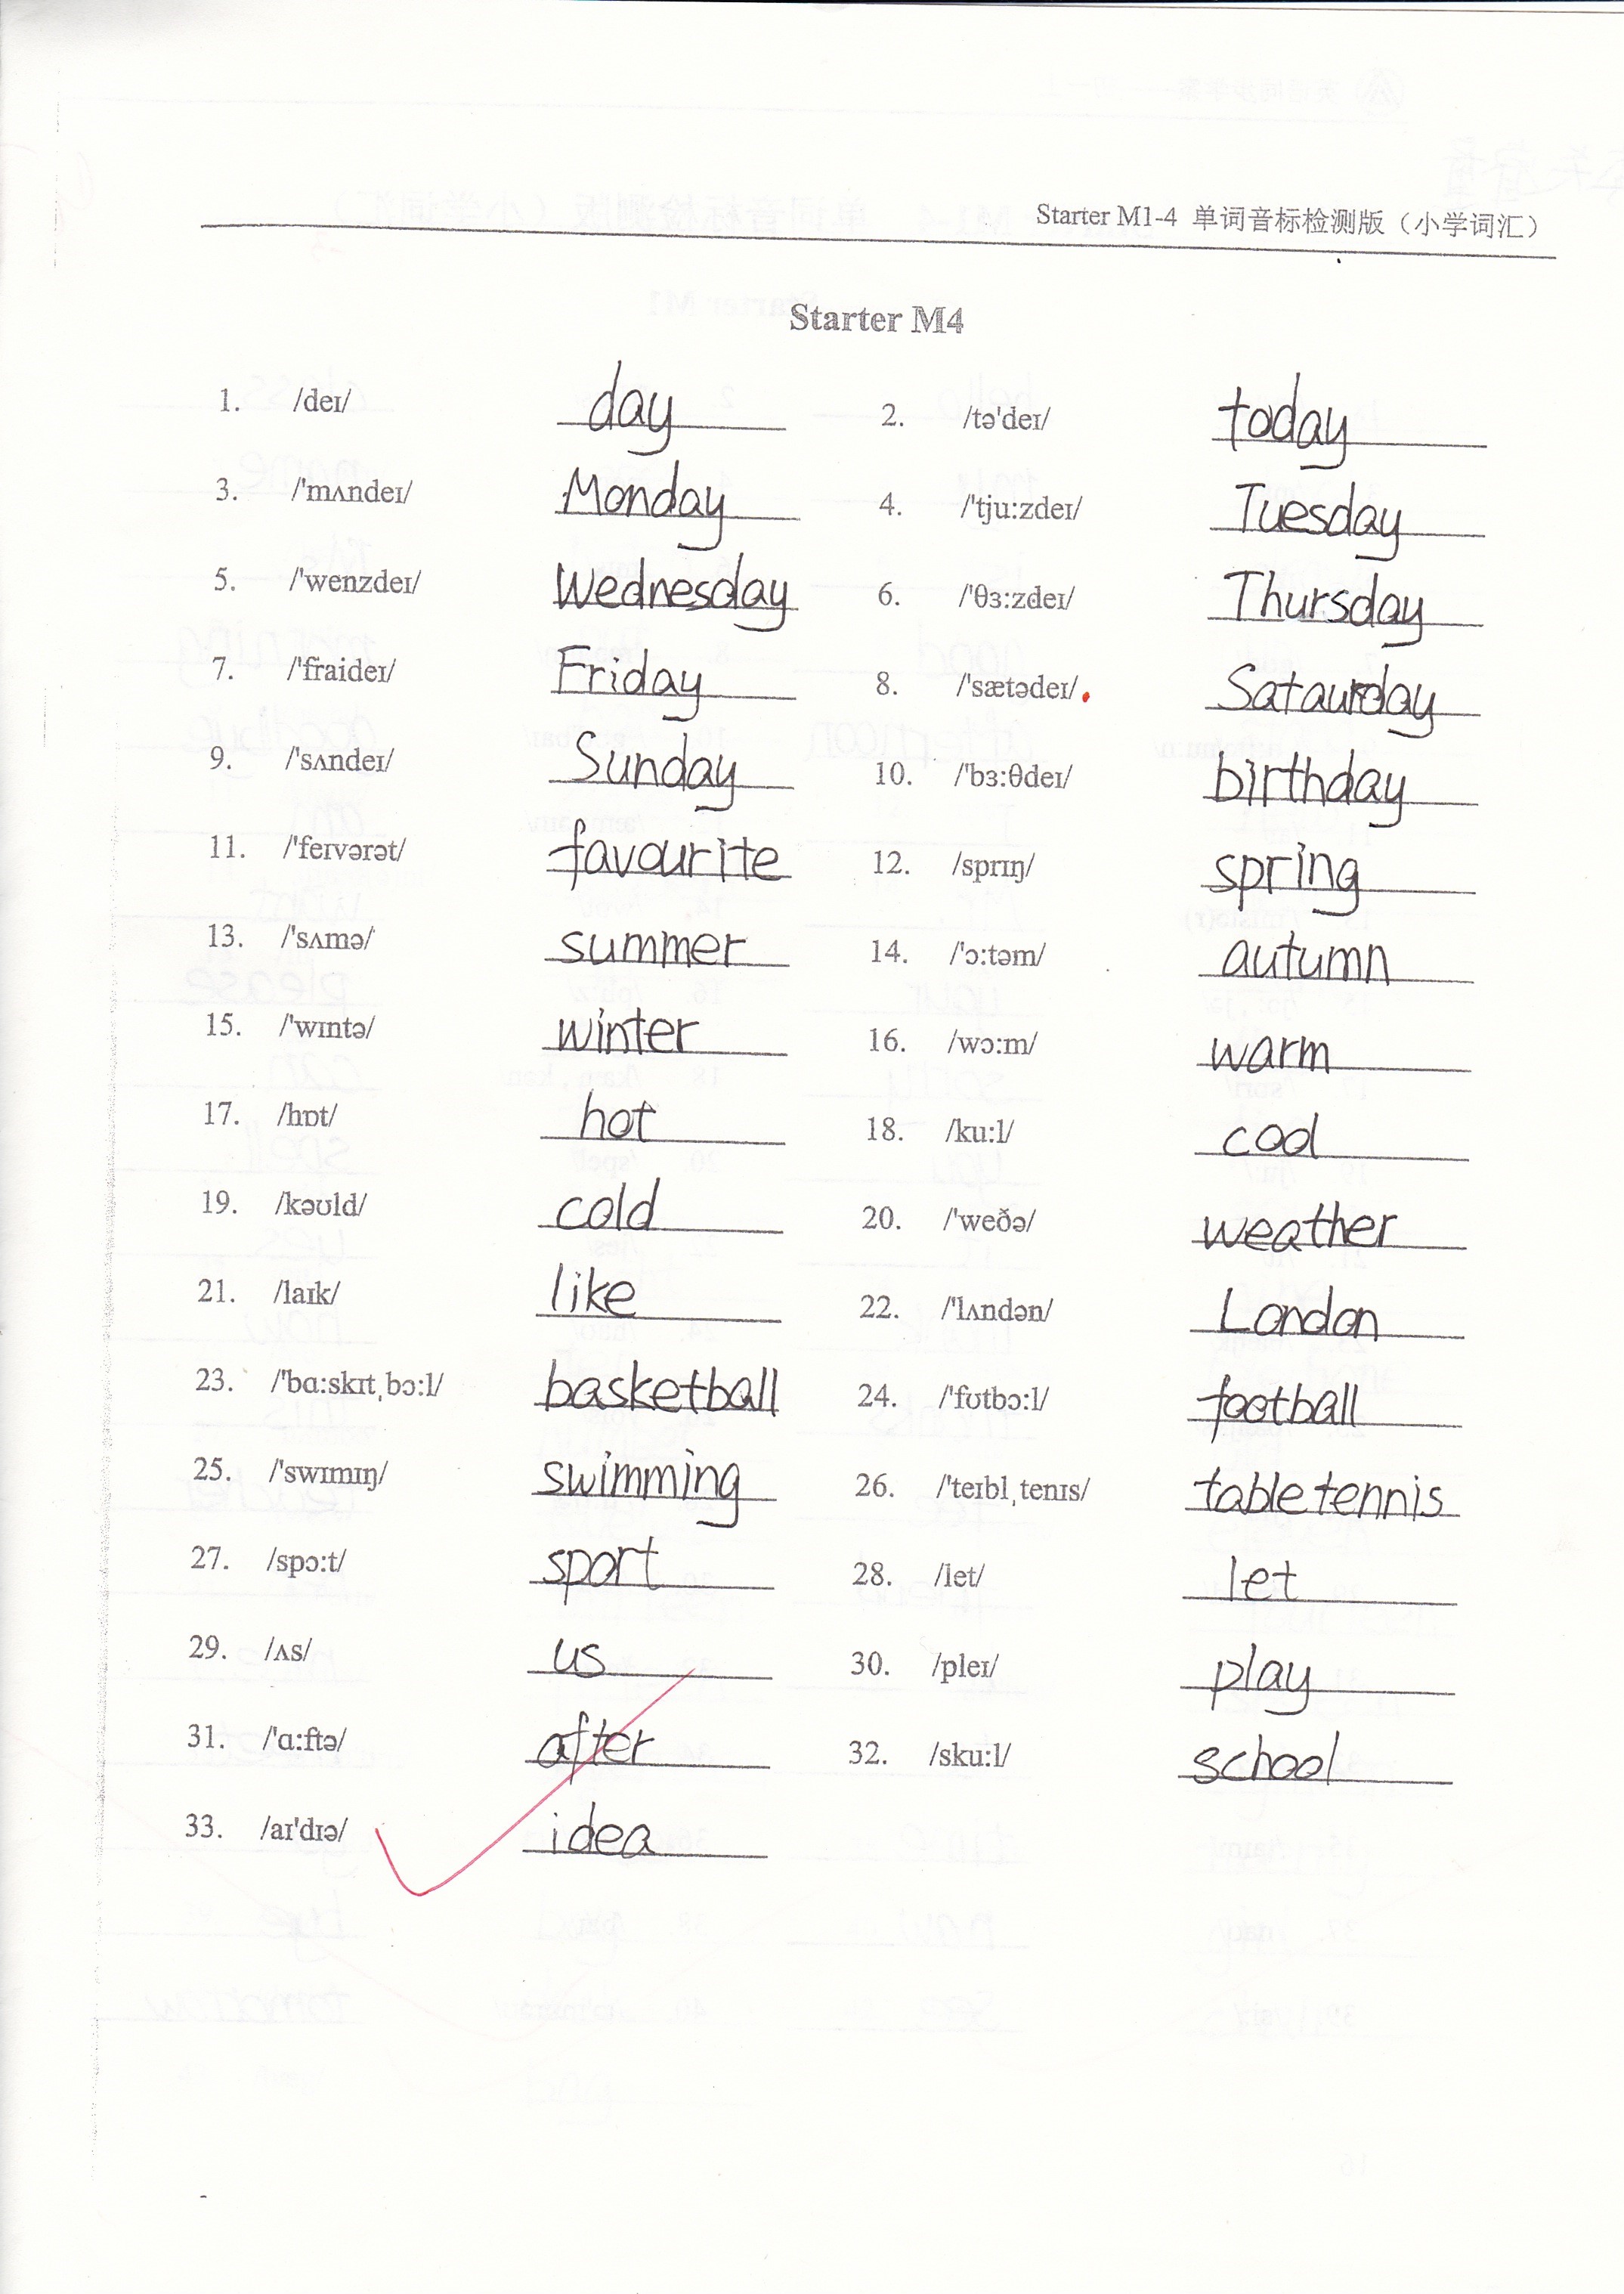 Starter M1-4 单词音标检测版（小学词汇）
Starter M4
1. /deɪ/ day 2. /tə'deɪ/ today
3. /'mʌndeɪ/ Monday 4. /'tju:zdeɪ/ Tuesday
5. /'wenzdeɪ/ Wednesday 6. /'θɜ:zdeɪ/ Thursday
7. /'fraideɪ/ Friday 8. /'sætədeɪ/ Sataurday
9. /'sʌndeɪ/ Sunday 10. /'bɜ:θdeɪ/ birthday
11. /'feɪvərət/ favourite 12. /sprɪŋ/ spring
13. /'sʌmə/ summer 14. /'ɔ:təm/ autumn
15. /'wɪntə/ winter 16. /wɔ:m/ warm
17. /hɒt/ hot 18. /ku:l/ cool
19. /kəʊld/ cold 20. /'weðə/ weather
21. /laɪk/ like 22. /'lʌndən/ London
23. /'bɑ:skɪtˌbɔ:l/ basketball 24. /'fʊtbɔ:l/ football
25. /'swɪmɪŋ/ swimming 26. /'teɪblˌtenɪs/ table tennis
27. /spɔ:t/ sport 28. /let/ let
29. /ʌs/ us 30. /pleɪ/ play
31. /'ɑ:ftə/ after 32. /sku:l/ school
33. /aɪ'dɪə/ idea